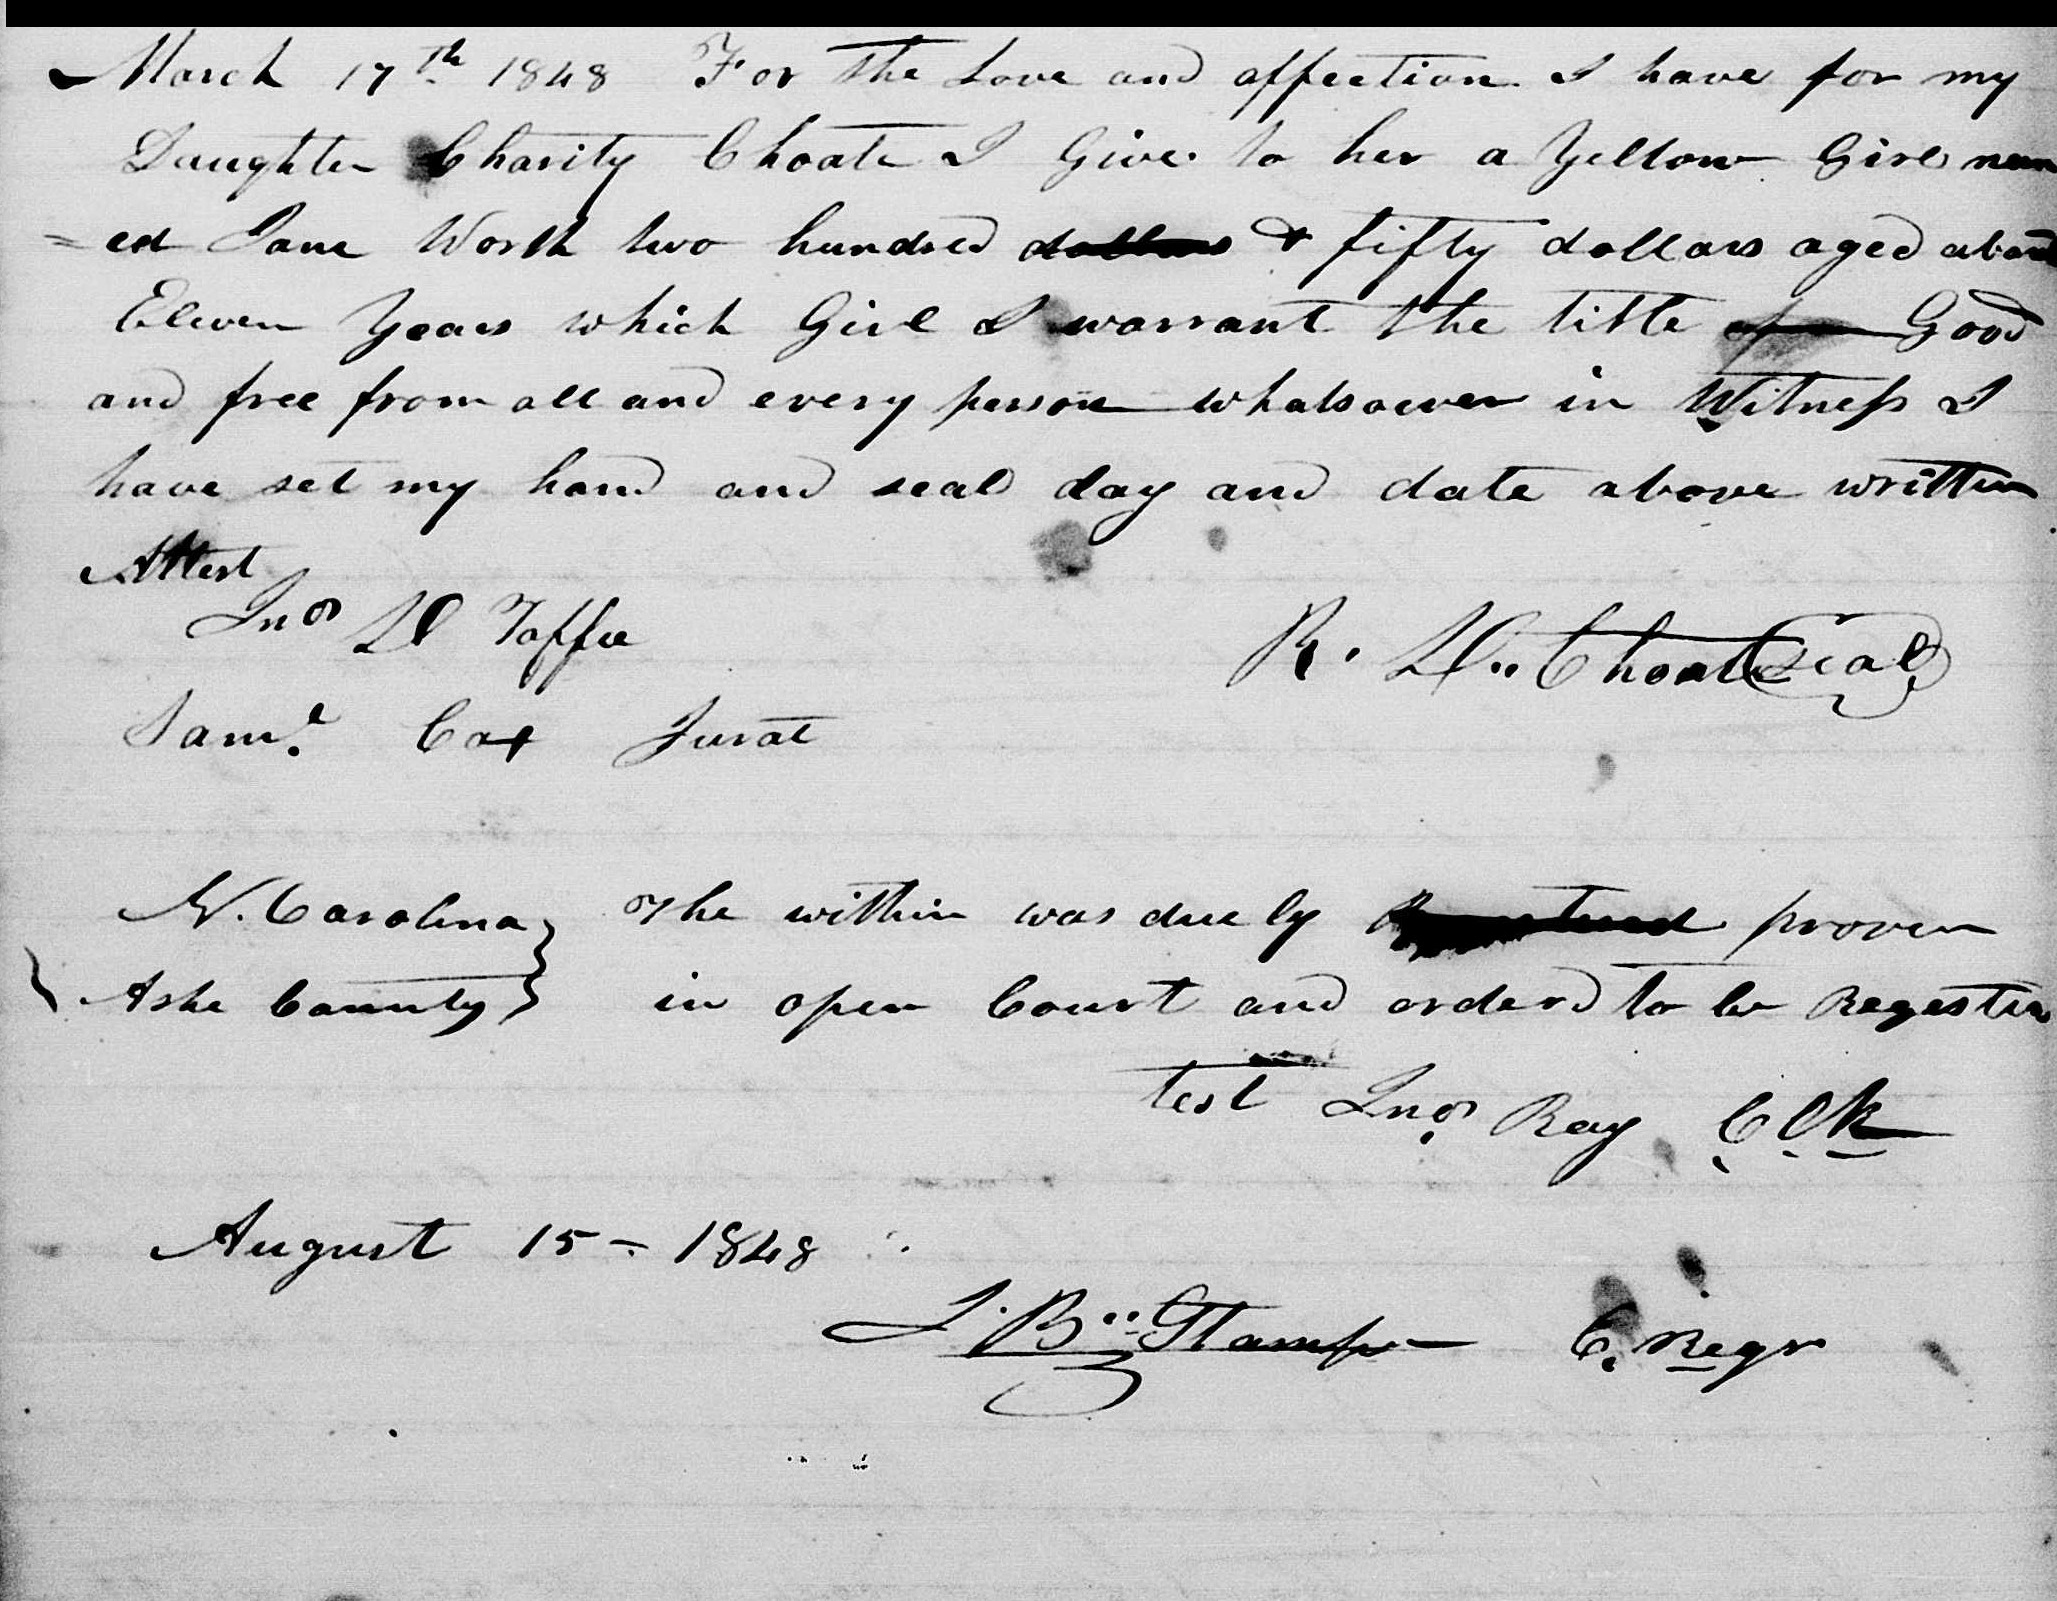 March 17th 1848 For the Love and affection I have for my
Daughter Charity Choate I Give to her a Yellow Girl nam
=ed Jane Worth two hundred dollars & fifty dollars aged about
Eleven Years which Girl I warrant the title Good
and free from all and every person whatsoever in Witness I
have set my hand and seal day and date above written
Attest
Jno D Taffee
R. D. Choate Seal
Saml Cox Jurat
N. Carolina } The within was duely proven
Ashe County } in open Court and orderd to be Regester
test Jno Ray Clk
August 15 - 1848
J. B. Stamper C. Regr